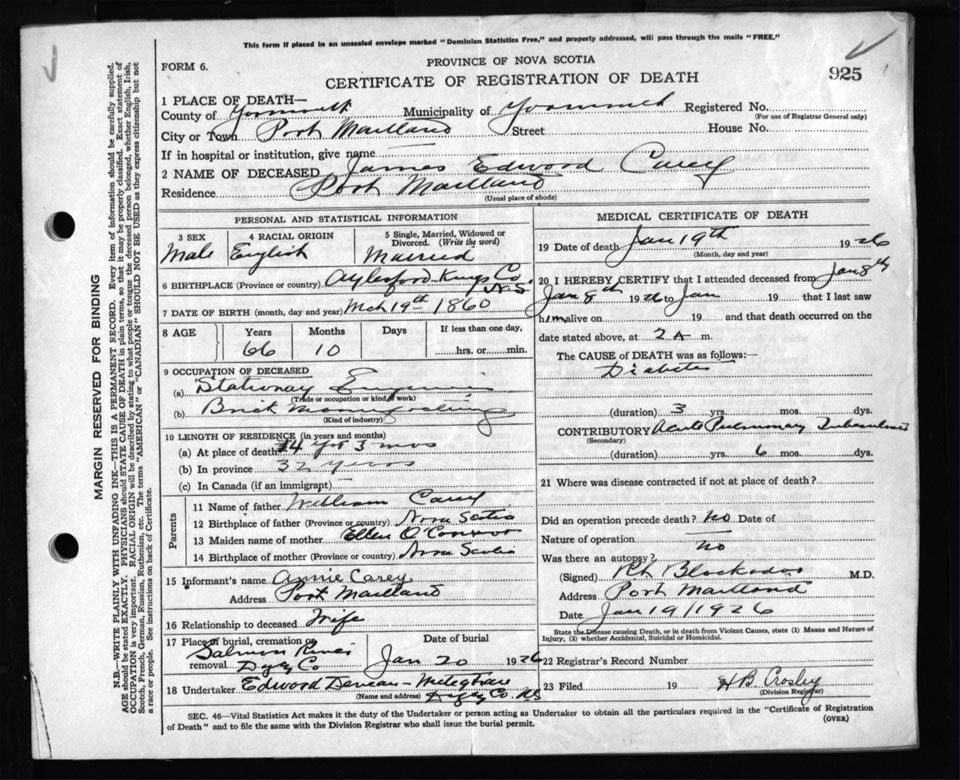 This form if placed in an unsealed envelope marked "Dominion Statistics Free," and properly addressed, will pass through the mails "FREE."
FORM 6.
PROVINCE OF NOVA SCOTIA
925
CERTIFICATE OF REGISTRATION OF DEATH
1 PLACE OF DEATH—
County of Yarmouth Municipality of Yarmouth Registered No.
(For use of Registrar General only)
City or Town Port Maitland Street House No.
If in hospital or institution, give name
2 NAME OF DECEASED James Edward Carey
Residence Port Maitland
(Usual place of abode)
PERSONAL AND STATISTICAL INFORMATION
3 SEX Male
4 RACIAL ORIGIN English
5 Single, Married, Widowed or Divorced. (Write the word) Married
6 BIRTHPLACE (Province or country) Aylesford Kings Co N.S.
7 DATE OF BIRTH (month, day and year) Mch 19th 1860
8 AGE Years 66 Months 10 Days If less than one day, hrs. or min.
9 OCCUPATION OF DECEASED
(a) Stationary
(Trade or occupation or kind of work)
(b) Brick
(Kind of industry)
10 LENGTH OF RESIDENCE (in years and months)
(a) At place of death 14 yrs 3 mos
(b) In province 32 years
(c) In Canada (if an immigrant)
Parents
11 Name of father William Carey
12 Birthplace of father (Province or country) Nova Scotia
13 Maiden name of mother Ellen O'Connor
14 Birthplace of mother (Province or country) Nova Scotia
15 Informant's name Annie Carey
Address Port Maitland
16 Relationship to deceased Wife
17 Place of burial, cremation or removal Salmon River Digby Co
Date of burial Jan 20 1926
18 Undertaker Edward Meteghan
(Name and address) Digby Co. NS
MEDICAL CERTIFICATE OF DEATH
19 Date of death Jan 19th 1926
(Month, day and year)
20 I HEREBY CERTIFY that I attended deceased from Jan 8th
Jan 8th 1926 to Jan 19 that I last saw
him alive on 19 and that death occurred on
date stated above, at 2 A m.
The CAUSE of DEATH was as follows:—
Diabetes
(duration) 3 yrs. mos. dys.
CONTRIBUTORY Acute Pulmonary Tuberculosis
(Secondary)
(duration) yrs. 6 mos. dys.
21 Where was disease contracted if not at place of death?
Did an operation precede death? No Date of
Nature of operation
Was there an autopsy? No
(Signed) M.D.
Address Port Maitland
Date Jan 19/1926
State the Disease causing Death, or in death from Violent Causes, state (1) Means and Nature of
Injury, (2) whether Accidental, Suicidal or Homicidal.
22 Registrar's Record Number
23 Filed 19 H B Crosby
(Division Registrar)
SEC. 46—Vital Statistics Act makes it the duty of the Undertaker or person acting as Undertaker to obtain all the particulars required in the "Certificate of Registration
of Death" and to file the same with the Division Registrar who shall issue the burial permit.
(OVER)
MARGIN RESERVED FOR BINDING
N.B.—WRITE PLAINLY WITH UNFADING INK—THIS IS A PERMANENT RECORD. Every item of information should be carefully supplied.
AGE should be stated EXACTLY. PHYSICIANS should STATE CAUSE OF DEATH in plain terms, so that it may be properly classified. Exact statement of
OCCUPATION is very important. RACIAL ORIGIN will be described by stating to what people or tongue the deceased person belonged, whether English, Irish,
Scotch, French, German, Russian, Ruthenian, etc. The terms "AMERICAN" or "CANADIAN" SHOULD NOT BE USED as they express citizenship but not
a race or people. See instructions on back of Certificate.